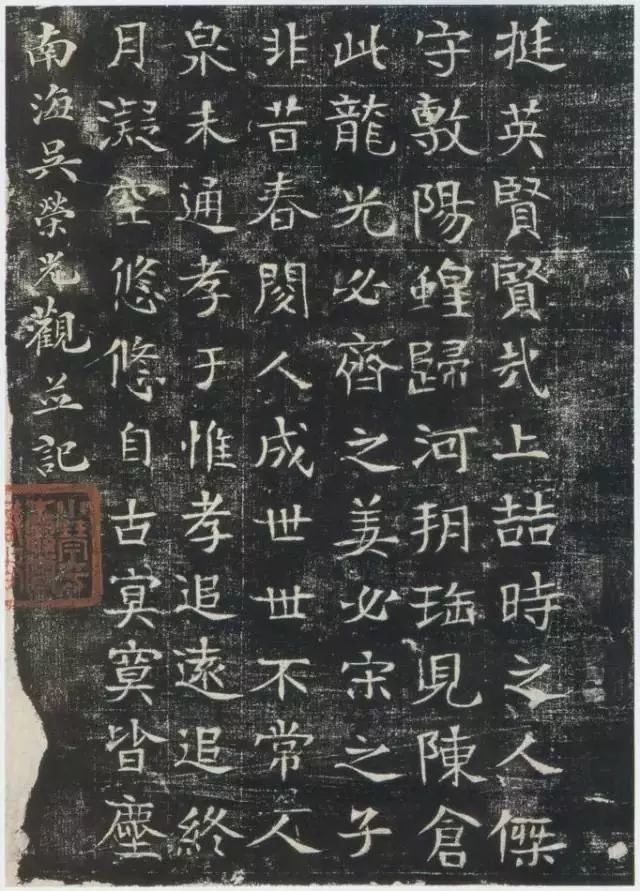 挺英賢賢哉上喆時之人傑
守敷陽蝗歸河朔瑞見陳倉
此龍光必齊之姜必宋之子
非昔春閱人成世世不常人
泉未通孝于惟孝追遠追終
月凝空悠悠自古寞寞皆塵
南海吳榮光觀並記